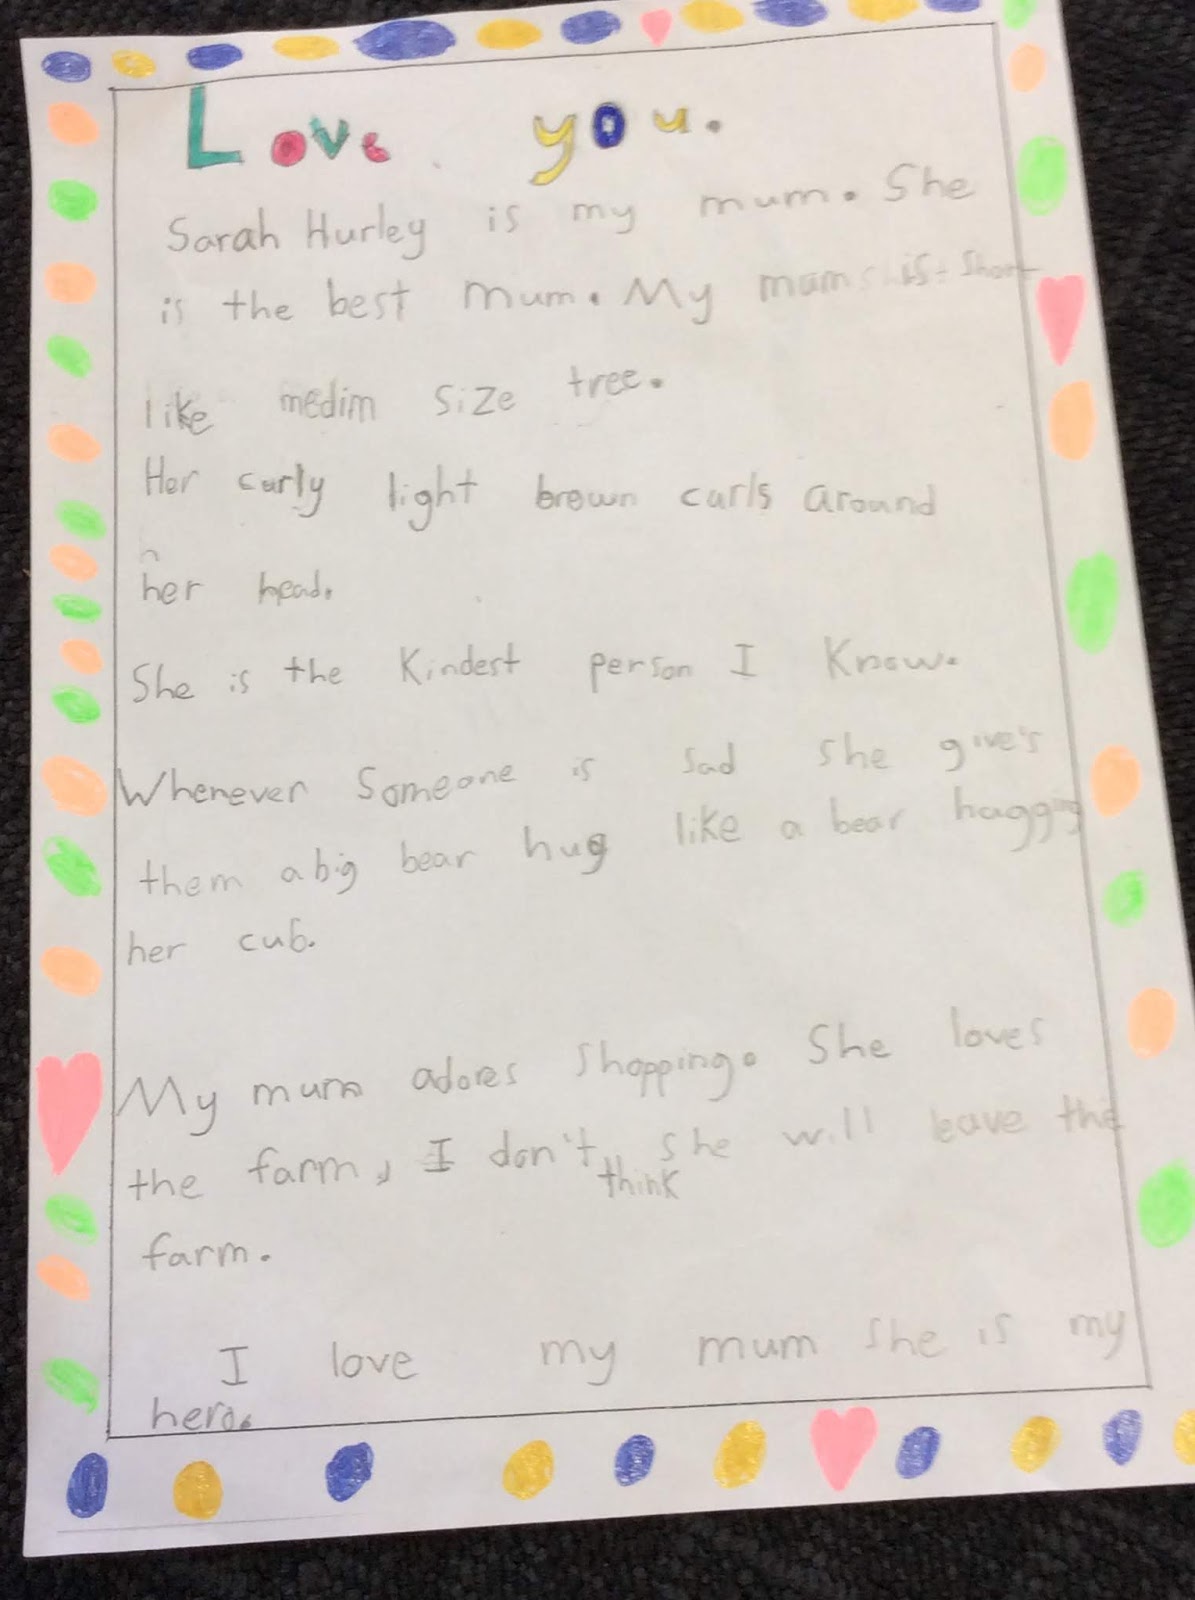 Love you.
Sarah Hurley is my mum. She
is the best mum. My mum is short
like medim size tree.
Her curly light brown curls around
her head.
She is the kindest person I know.
Whenever someone is sad she give's
them a big bear hug like a bear hugging
her cub.
My mum adores shopping. She loves
the farm, I don't think she will leave the
farm.
I love my mum she is my
hero.